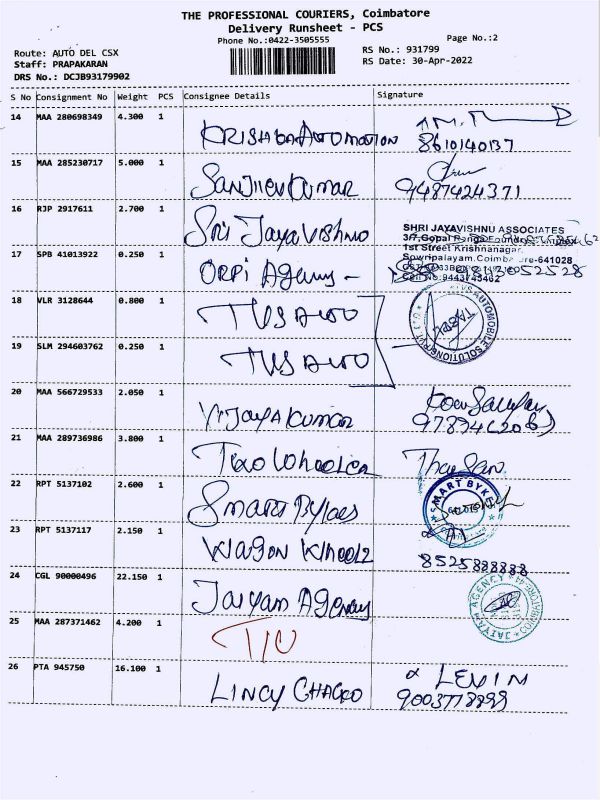 THE PROFESSIONAL COURIERS, Coimbatore
Delivery Runsheet - PCS
Phone No.:0422-3505555
Page No.:2
Route: AUTO DEL CSX
RS No.: 931799
Staff: PRAPAKARAN
RS Date: 30-Apr-2022
DRS No.: DCJB93179902
S No Consignment No Weight PCS Consignee Details Signature
14 MAA 280698349 4.300 1
KRISHBA AUTOMOTION 8610140137
15 MAA 285230717 5.000 1
Sanjiiev Kumar 9487424371
16 RJP 2917611 2.700 1
Sri Jaya Vishnu
SHRI JAYAVISHNU ASSOCIATES
3/7,Gopal Ranga
1st Street Krishnanagar,
Sowripalayam,Coimbatore-641028
17 SPB 41013922 0.250 1
ORPI Agency -
18 VLR 3128644 0.800 1
TVS AUTO
19 SLM 294603762 0.250 1
TVS AUTO
AUTOMOBILE SOLUTIONS
20 MAA 566729533 2.050 1
Vijaya Kumar
21 MAA 289736986 3.800 1
Two Wheeler
22 RPT 5137102 2.600 1
Smart Bykes
SMART BYKES
23 RPT 5137117 2.150 1
Wagon Wheelz 8525888888
24 CGL 90000496 22.150 1
Jaiyam Agency
JAIYAM AGENCY
25 MAA 287371462 4.200 1
TIU
26 PTA 945750 16.100 1
LINCY CHACKO LEVIN
9003778899